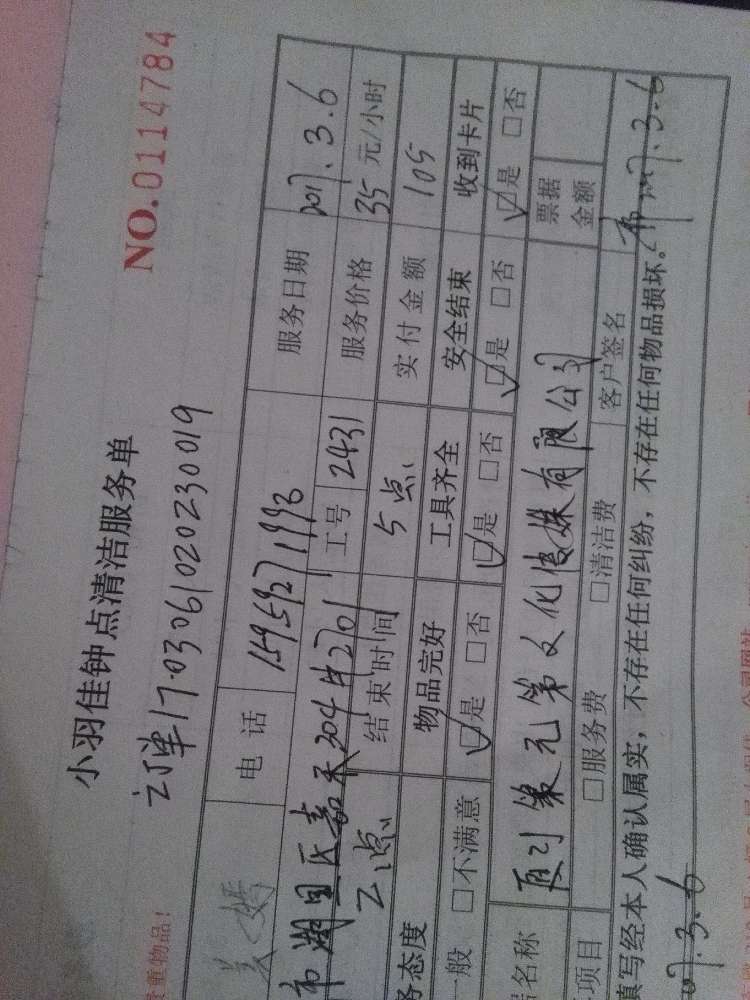 NO.0114784
小羽佳钟点清洁服务单
订单1703061020230019
电话 15959271993 服务日期 2017.3.6
市湖里区嘉禾304#2701 工号 2431 服务价格 35元/小时
2点 结束时间 5点 实付金额 105
务态度 物品完好 工具齐全 安全结束 收到卡片
般 □不满意 ☑是 □否 ☑是 □否 ☑是 □否 ☑是 □否
名称 厦门策元第文化传媒有限公司 票据金额
项目 □服务费 □清洁费 客户签名
填写经本人确认属实，不存在任何纠纷，不存在任何物品损坏。 2017.3.6
贵重物品！
7.3.6